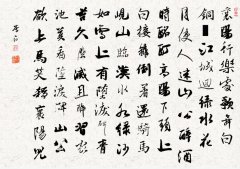 襄陽行樂處歌舞白
銅鞮江城迴綠水花
月使人迷山公醉酒
時酩酊高陽下頭上
白接籬倒著還騎馬
峴山臨漢江水綠沙
如雪上有墮淚碑青
苔久磨滅且醉習家
池莫看墮淚碑山公
欲上馬笑殺襄陽兒